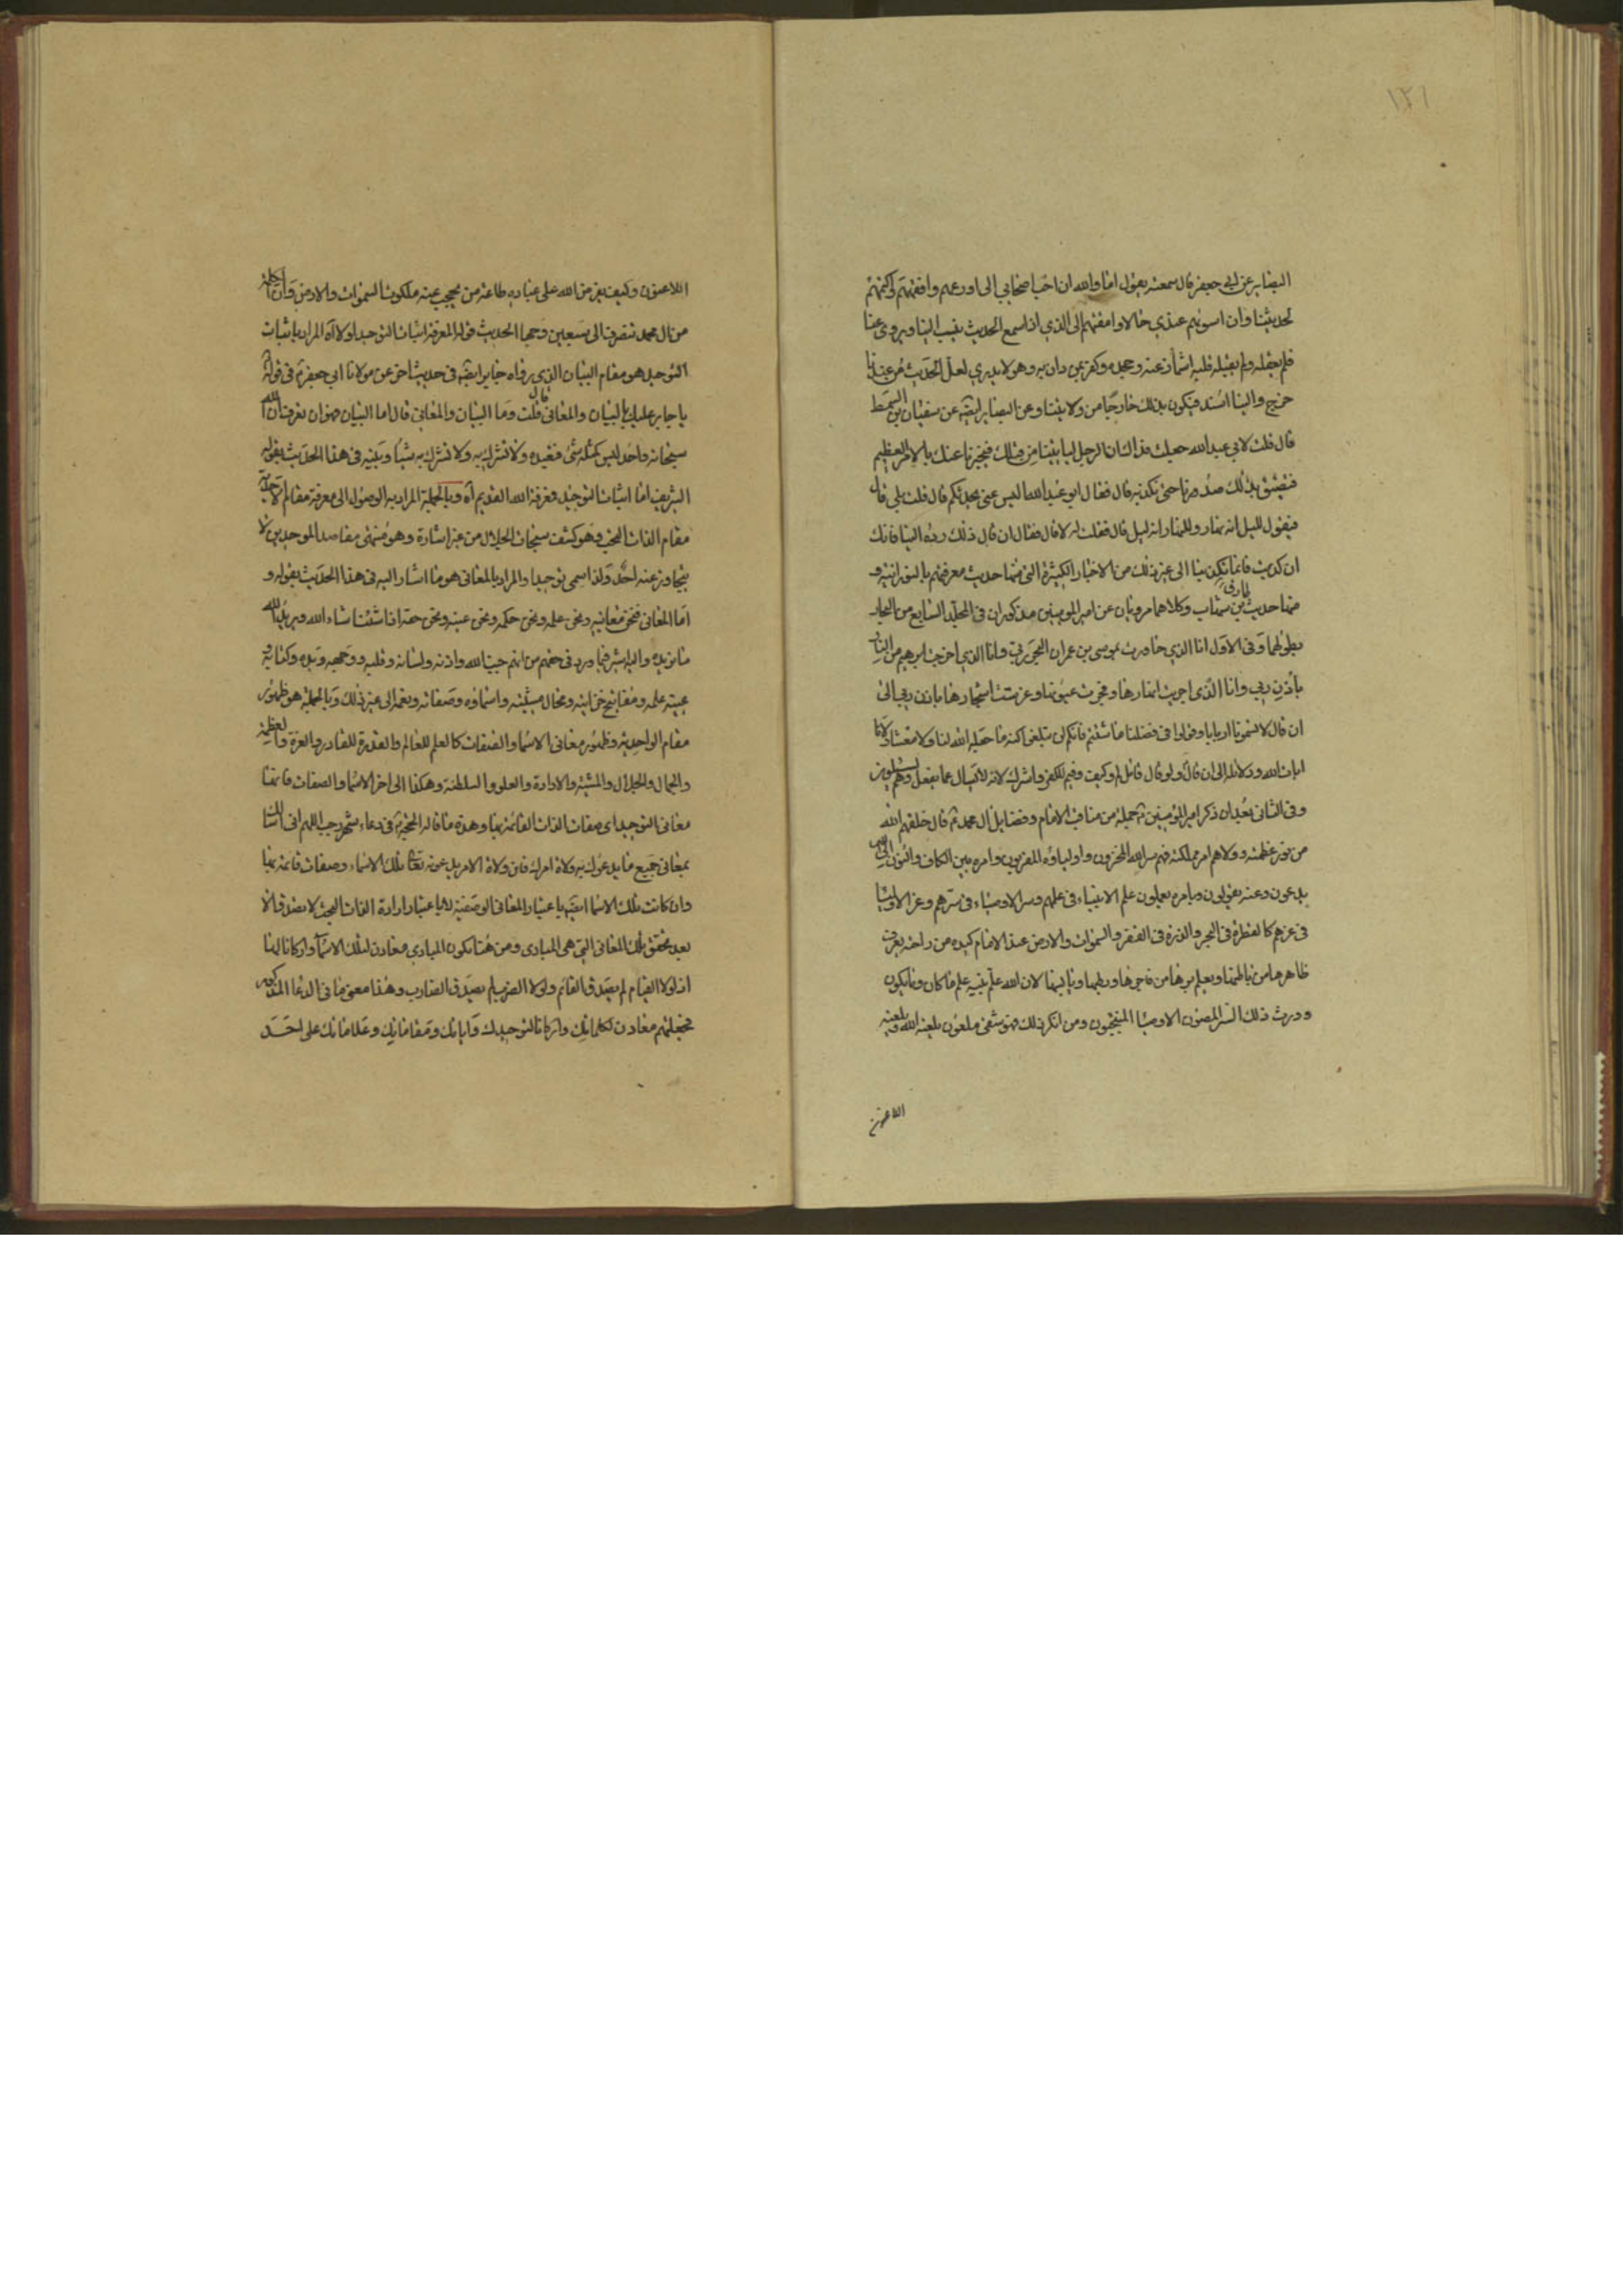 ١٢١
البصاير عن ابي جعفر قال سمعته يقول اما والله ان احب اصحابي الى اورعهم وافقههم واكتمهم
لحديثنا وان اسوئهم عندي حالا وامقتهم الى الذي اذا سمع الحديث ينسب الينا ويروى عنا
فلم يعقله ولم يقبله قلبه اشمأز عنه وجحده وكفر بمن دان به وهو لا يدري لعل الحديث من عندنا
خرج والينا اسند فيكون بذلك خارجا من ولايتنا وعن البصاير ايضه عن سفيان بن السمط
قال قلت لابي عبد الله جعلت فداك ان الرجل ليأتينا من قبلك فيخبرنا عنك بالامر العظيم
فيضيق بذلك صدورنا حتى نكذبه قال فقال ابو عبد الله اليس عنى يحدثكم قال قلت بلى قال
فيقول لليل انه نهار وللنهار انه ليل قال فقلت له لا قال فقال ان قال ذلك رده الينا فانك
ان كذبت فانما تكذبنا الى غير ذلك من الاخبار الكثيرة التي منها حديث معرفتهم بالنورانية و
منها حديث طارق بن شهاب وكلاهما مرويان عن امير المومنين مذكوران في المجلد السابع من البحار
بطولهما وفي الاول انا الذي جاوزت بموسى بن عمران البحر بربي وانا الذي اخرجت ابرهيم من النار
باذن ربي وانا الذي اجريت انهارها وفجرت عيونها وغرست اشجارها باذن ربي الى
ان قال لا تسمونا اربابا وقولوا في فضلنا ما شئتم فانكم لن تبلغوا كنه ما جعله الله لنا ولا معشار ولانا
ايات الله ودلائله الى ان قال ولو قال قائل لم وكيف وفيم لكفر واشرك لانه لا يسال عما يفعل وهم يسئلون
وفي الثاني بعد ان ذكر امير المؤمنين جملة من مناقب الامام وفضايل ال محمد قال خلقهم الله
من نور عظمته وولاهم امر مملكته فهم سر الله المخزون واولياؤه المقربون وامره بين الكاف والنون الى الله
يدعون وعنه يقولون وبامره يعملون علم الانبياء في علمهم وسر الاوصياء في سرهم وعز الاوليا
في عزهم كالقطرة في البحر والذرة في القفر والسموات والارض عند الامام كيده من راحته يعرف
ظاهرها من باطنها ويعلم برها من فاجرها ورطبها ويابسها لان الله علم نبيه علم ما كان وما يكون
وورث ذلك السر المصون الاوصيا المنتجبون ومن انكر ذلك فهو شقي ملعون يلعنه الله ويلعنه
اللاعنون
اللاعنون وكيف يفرض الله على عباده طاعة من يحجب عنه ملكوت السموات والارض وان الكلمة
من ال محمد تنصرف الى سبعين وجها الحديث قوله المعرفة اثبات التوحيد اولا آه المراد باثبات
التوحيد هو مقام البيان الذي رواه جابر ايضه في حديث اخر عن مولانا ابي جعفر في قوله
يا جابر عليك بالبيان والمعاني قال قلت وما البيان والمعاني قال اما البيان فهو ان تعرف ان الله
سبحانه واحد ليس كمثله شئ فتعبده ولا تشرك به ولا تشرك به شيئا وبينه في هذا الحديث بقوله
الشريف اما اثبات التوحيد فمعرفة الله القديم آه وبالجملة المراد به الوصول الى معرفة مقام الاحدية
مقام الذات البحت وهو كشف سبحات الجلال من غير اشارة وهو منتهى مقاصد الموحدين لا
يتجاوز عنه احد ولذا سمى توحيدا والمراد بالمعاني هو ما اشار اليه في هذا الحديث بقوله و
اما المعاني فنحن معانيه ونحن علمه ونحن حكمه ونحن عينه ونحن حقه اذا شئنا شاء الله ويريد الله
ما نريده واليه يشير ما ورد في حقهم من انهم جنب الله واذنه ولسانه وقلبه ووجهه ويده وكتابه
عيبة علمه ومفاتيح خزاينه ومحال مشيته واسماؤه وصفاته ونعمه الى غير ذلك وبالجملة هو ظهور
مقام الواحدية وظهور معاني الاسماء والصفات كالعلم للعالم والقدرة للقادر والعزة والعظمة
والجمال والجلال والمشية والارادة والعلو والسلطنة وهكذا الى اخر الاسما والصفات فانها
معاني التوحيد اي صفات الذات القائمة بها وهذه ما قاله الحجة في دعاء شهر رجب اللهم اني اسئلك
بمعاني جميع ما يدعوك به ولاة امرك فان ولاة الامر يدعونه تعالى بتلك الاسماء وصفات قائمة بها
وان كانت تلك الاسما ايضه باعتبار المعاني الوصفية لا باعتبار ارادة الذات البحت لا يصدق الا
بعد تحقق تلك المعاني التي هي المبادي ومن هنا تكون المبادي معادن لتلك الاسماء واركانا لها
اذ لولا القيام لم يصدق القائم ولولا الضرب لم يصدق الضارب وهذا معنى ما في الدعا المذكور
فجعلتهم معادن لكلماتك واركانا لتوحيدك واياتك ومقاماتك وعلاماتك على احد